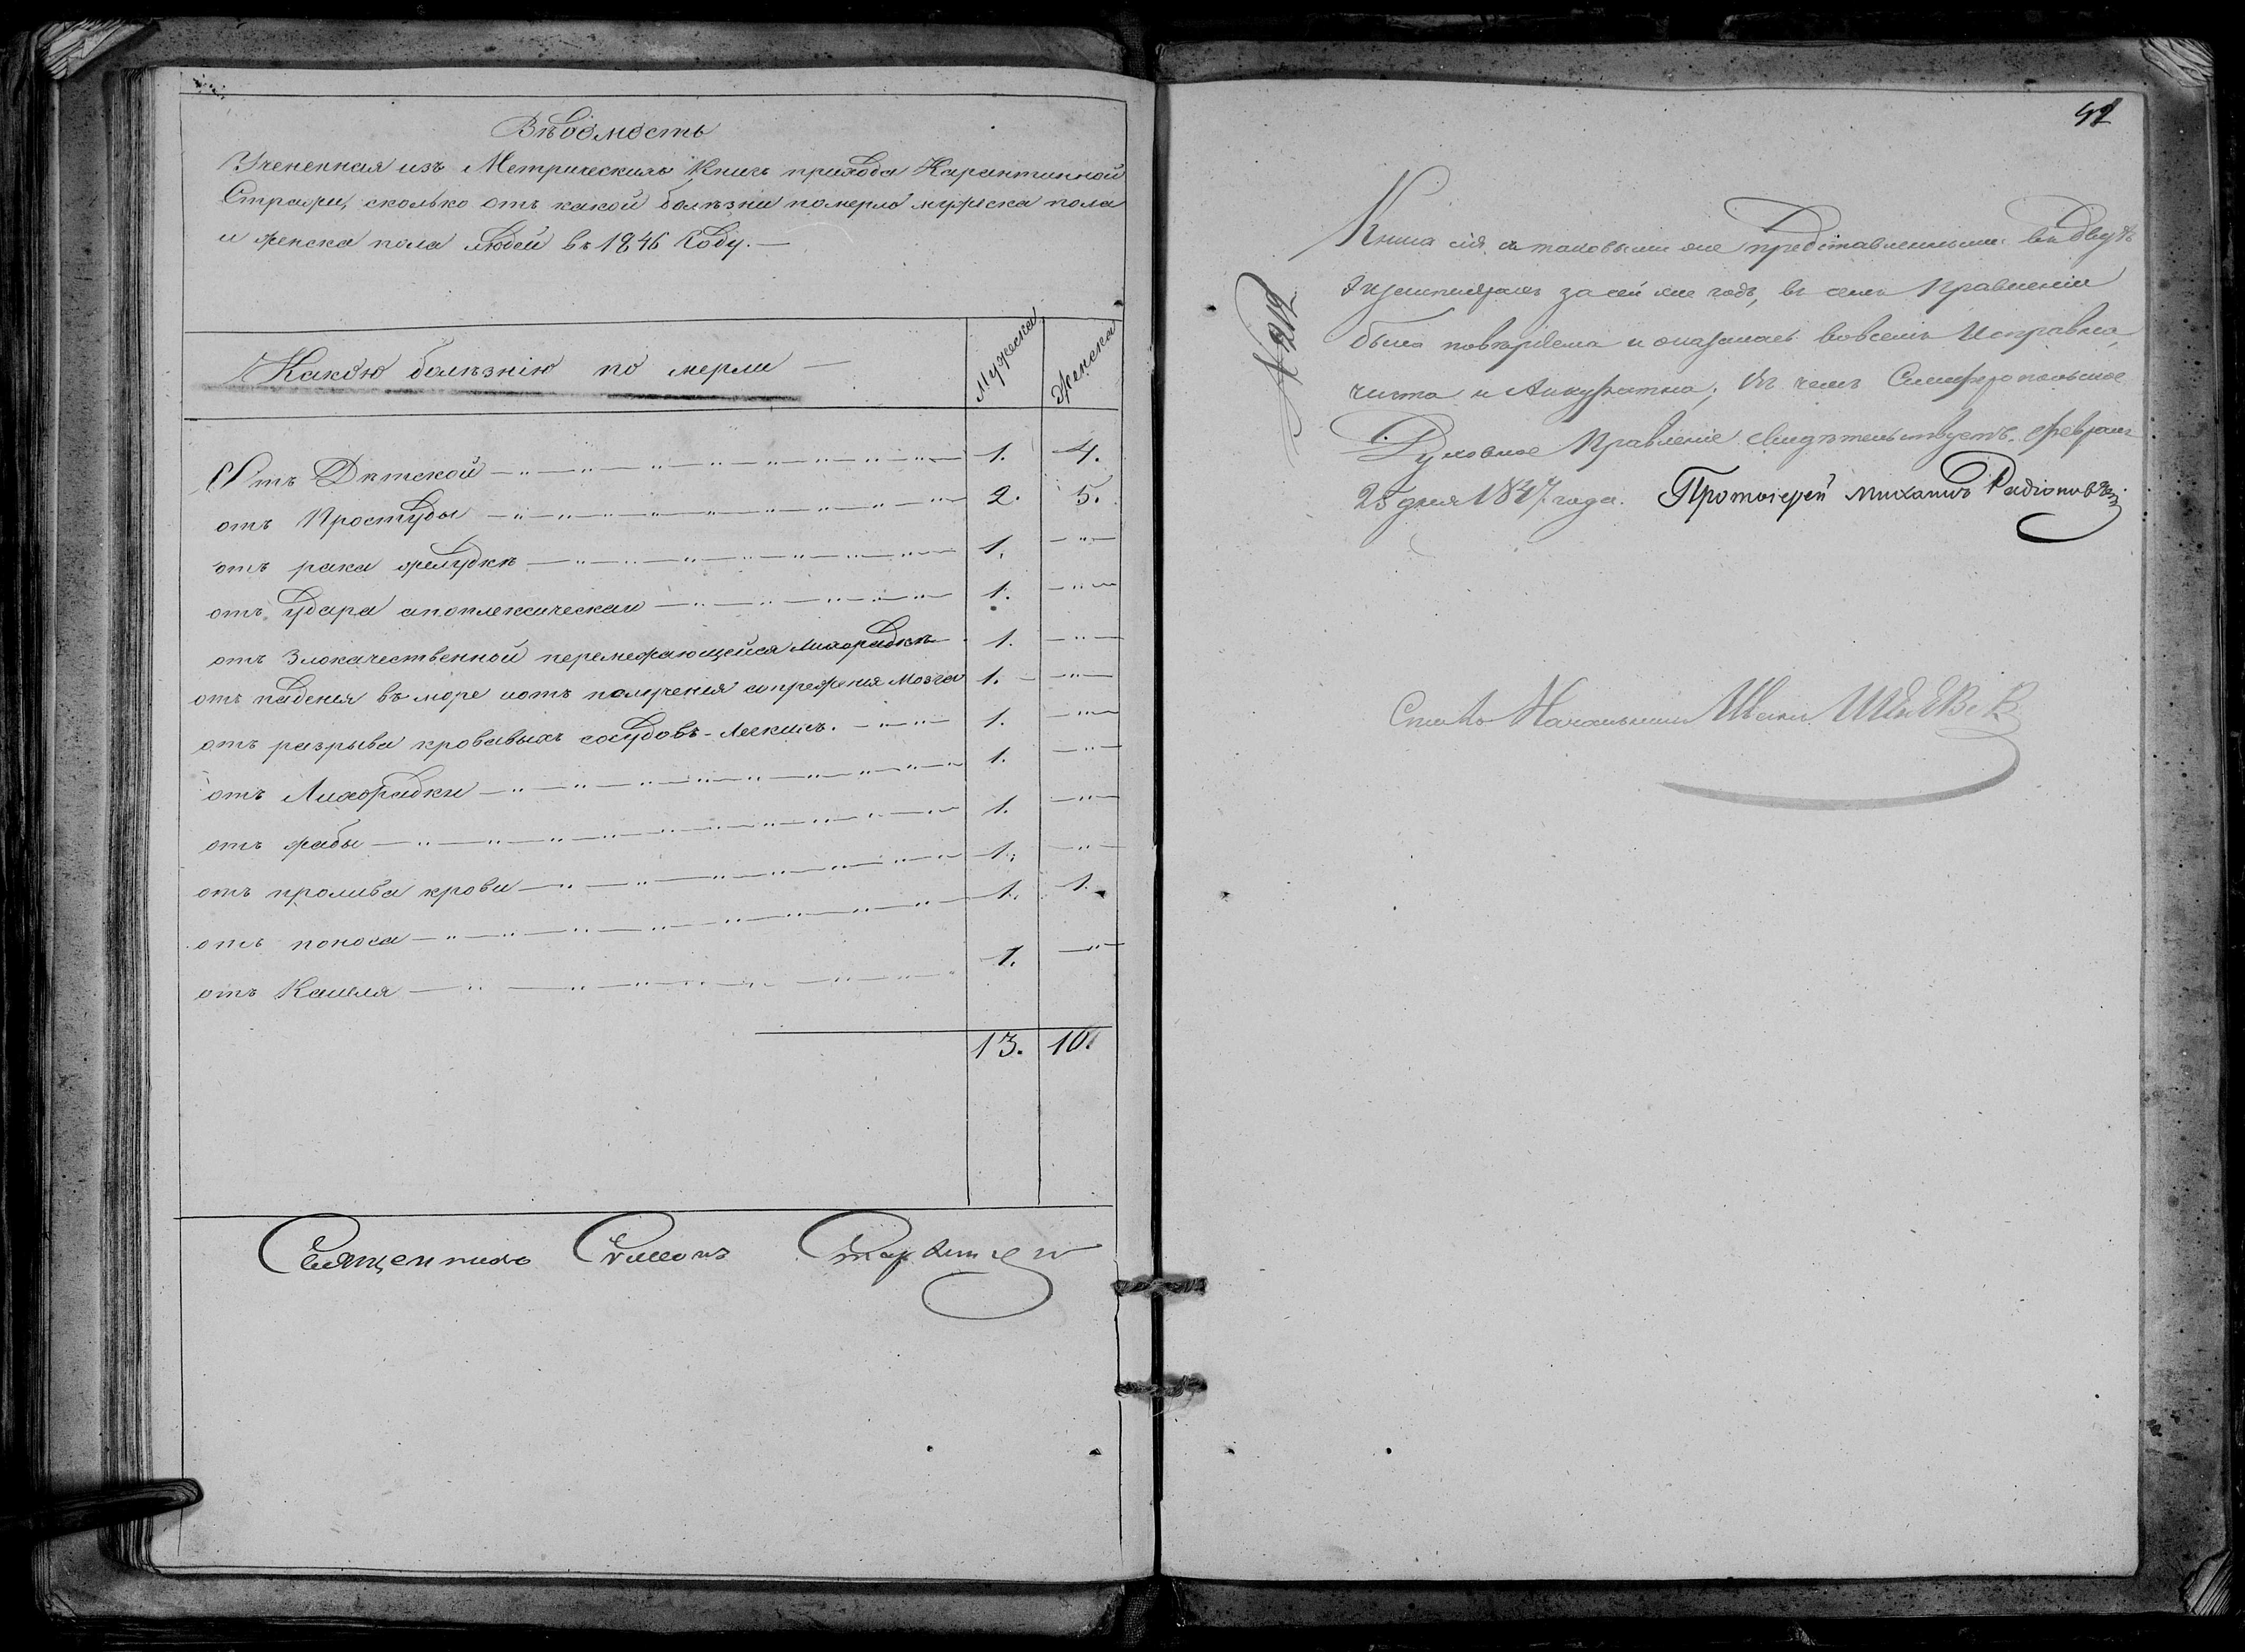 Вѣдомость
Учененная изъ Метрическихъ Книгъ прихода Карантинной
Стражи, сколько отъ какой болѣзни померло мужеска пола
и женска пола людей въ 1846 Году. —
Какою болѣзнію по мерли — Мужеска Женска
Отъ Дѣтской 1. 4.
отъ Простуды 2. 5.
отъ рака желудкѣ 1. — " —
отъ удара апоплексическаи 1. — " —
отъ Злокачественной перемежающейся Лихорадкѣ 1. — " —
отъ падения въ море иотъ получения сопрежения Мозга 1. — " —
отъ разрыва кровавыхъ сосудовъ - Легкихъ. 1. — " —
отъ Лихорадки 1. — " —
отъ жабы 1. — " —
отъ пролива крови 1. — " —
отъ поноса 1. 1.
отъ Кашля 1. — " —
13. 10.
Священникъ Симонъ
92
№ 212
Книга сія съ таковыми же представленными въ двухъ
экземплярахъ за сей же годъ, въ семъ Правленіи
была повѣряема и оказалась вовсемъ Исправна,
чиста и Аккуратна; Въ чемъ Симферопольское
Духовное Правленіе свидѣтельствуетъ. Февраля
25 дня 1847 года. Протоіерей Михаилъ Радіоновъ
Столо Начальникъ Иванъ